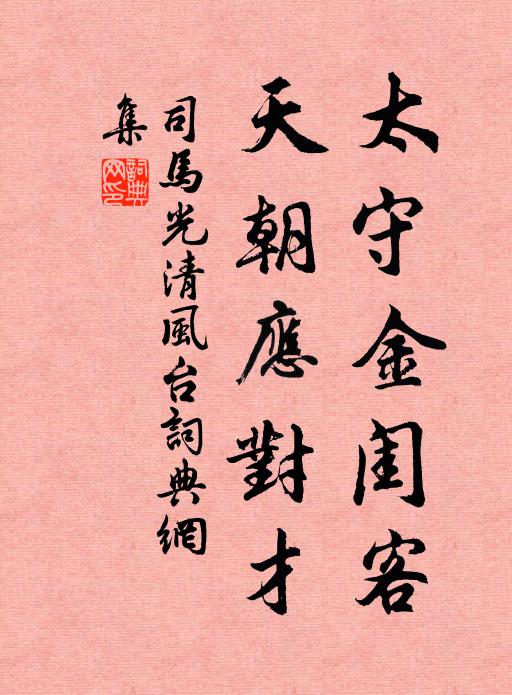 太守金闺客
天朝應對才
司馬光清風台詞典網
集
詞典網印